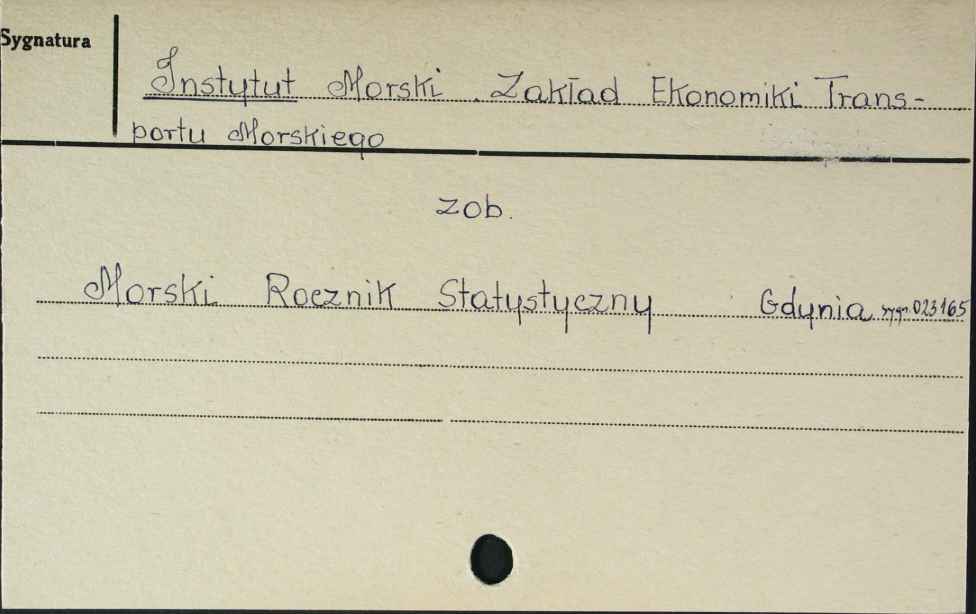 Sygnatura
Instytut Morski. Zakład Ekonomiki Trans-
portu Morskiego
zob.
Morski Rocznik Statystyczny Gdynia sygn. 023165